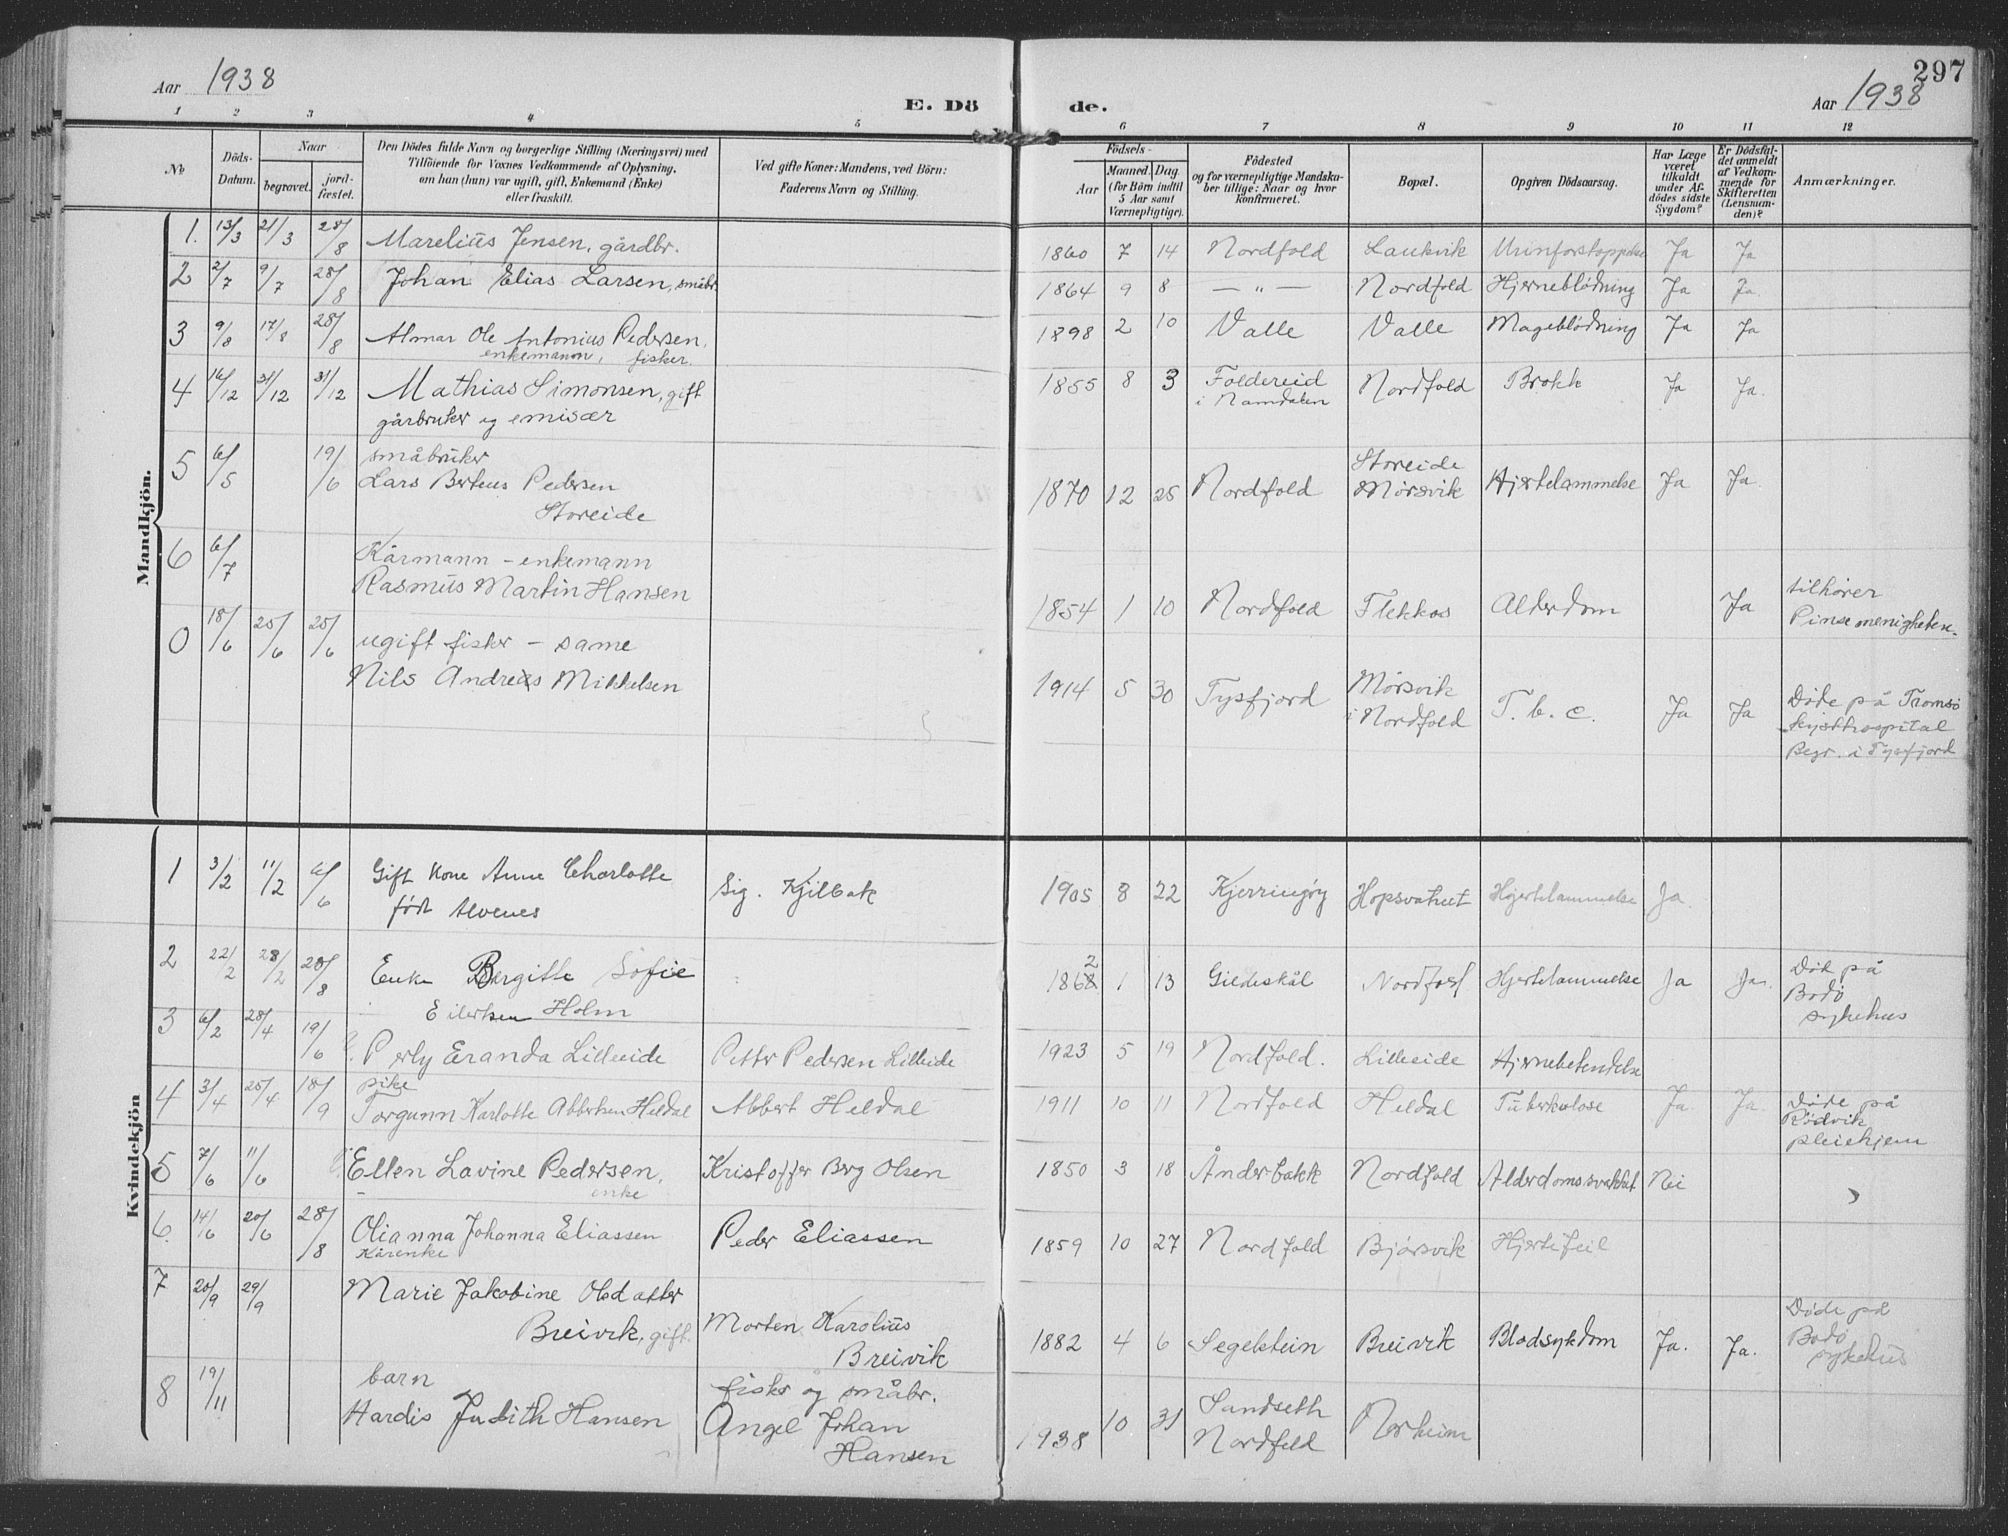 297
Aar 1938
E. Dö de.
Aar 1938
1 2 3 4 5 6 7 8 9 10 11 12
No
Döds-
Datum.
Naar
begravet.
jord-
fæstet.
Den Dödes fulde Navn og borgerlige Stilling (Næringsvei) med
Tilföiende for Voxnes Vedkommende af Oplysning,
om han (hun) var ugift, gift, Enkemand (Enke)
eller fraskilt.
Ved gifte Koner: Mandens, ved Börn:
Faderens Navn og Stilling.
Födsels-
Aar
Maaned. Dag
(for Börn indtil
5 Aar samt
Værnepligtige).
Födested
og for værnepligtige Mandska-
ber tillige: Naar og hvor
konfirmeret.
Bopæl.
Opgiven Dödsaarsag.
Har Læge
været
tilkaldt
under Af-
dödes sidste
Sygdom?
Er Dödsfal-
det anmeldt
af Vedkom-
mende for
Skifteretten
(Lensman-
den)?
Anmærkninger.
Mandkjön.
1. 13/3 21/3 28/8 Marelius Jensen, gårdbr. 1860 7 14 Nordfold Laukvik Urinforstoppelse Ja Ja
2 2/7 9/7 28/8 Johan Elias Larsen, småbr. 1864 9 8 — " — Nordfold Hjerneblødning Ja Ja
3 9/8 17/8 28/8 Almar Ole Antonius Pedersen, 1898 2 10 Valle Valle Mageblödning Ja Ja
enkemann, fisker.
4 16/12 31/12 31/12 Mathias Simonsen, gift 1855 8 3 Foldereid Nordfold Brokk Ja Ja.
gårbruker og emisær i Namdalen
5 6/5 19/6 småbruker Storeide
Lars Berteus Pedersen 1870 12 25 Nordfold Mørsvik Hjertelammelse Ja Ja.
Storeide
6 6/7 Kårmann - enkemann tilhører
Rasmus Martin Hansen 1854 1 10 Nordfold Flekkos Alderdom Ja Pinsemenigheten.
0 18/6 25/6 25/6 ugift fisker - same Mørsvik
Nils Andreas Mikkelsen 1914 5 30 Tysfjord i Nordfold T. b. c. Ja Ja Døde på Tromsö
kysthospital
Begr. i Tysfjord
Kvindekjön
1 3/2 11/2 6/6 Gift kone Anne Charlotte Sig. Kjilbak 1905 8 22 Kjerringøy Hopsvatnet Hjertelammelse Ja.
født Alvenes
2 22/2 28/2 28/8 Enke Bergitte Sofie 1862 1 13 Gildeskål Nordfold Hjertelammelse Ja Ja. Død på
Eilertsen Holm Bodö
sykehus
3 6/2 28/4 19/6 Perly Eranda Lilleeide Petter Pedersen Lilleeide 1923 5 19 Nordfold. Lilleeide Hjernebetendelse
4 3/4 25/4 18/9 pike
Torgunn Karlotte Albertsen Heldal Albert Heldal 1911 10 11 Nordfold Heldal Tuberkulose Ja. Ja. Døde på
Rödvik
pleiehjem
5 7/6 11/6 Ellen Lavine Pedersen, Kristoffer Berg Olsen 1850 3 18 Ånderbakk Nordfold Alderdomssvekket Nei
enke
6. 14/6 20/6 28/8 Olianna Johanna Eliassen Peder Eliassen 1859 10 27 Nordfold Bjørsvik Hjertefeil
Kårenke
7 20/9 29/9 Marie Jakobine Olsdatter Morten Karolius
Breivik, gift. Breivik 1882 4 6 Segelstein Breivik Blodsykdom Ja. Ja. Døde på
Bodö
sykehus
8 19/11 barn fisker og småbr.
Hardis Judith Hansen Angel Johan 1938 10 31 Sandseth Norheim
Hansen Nordfold